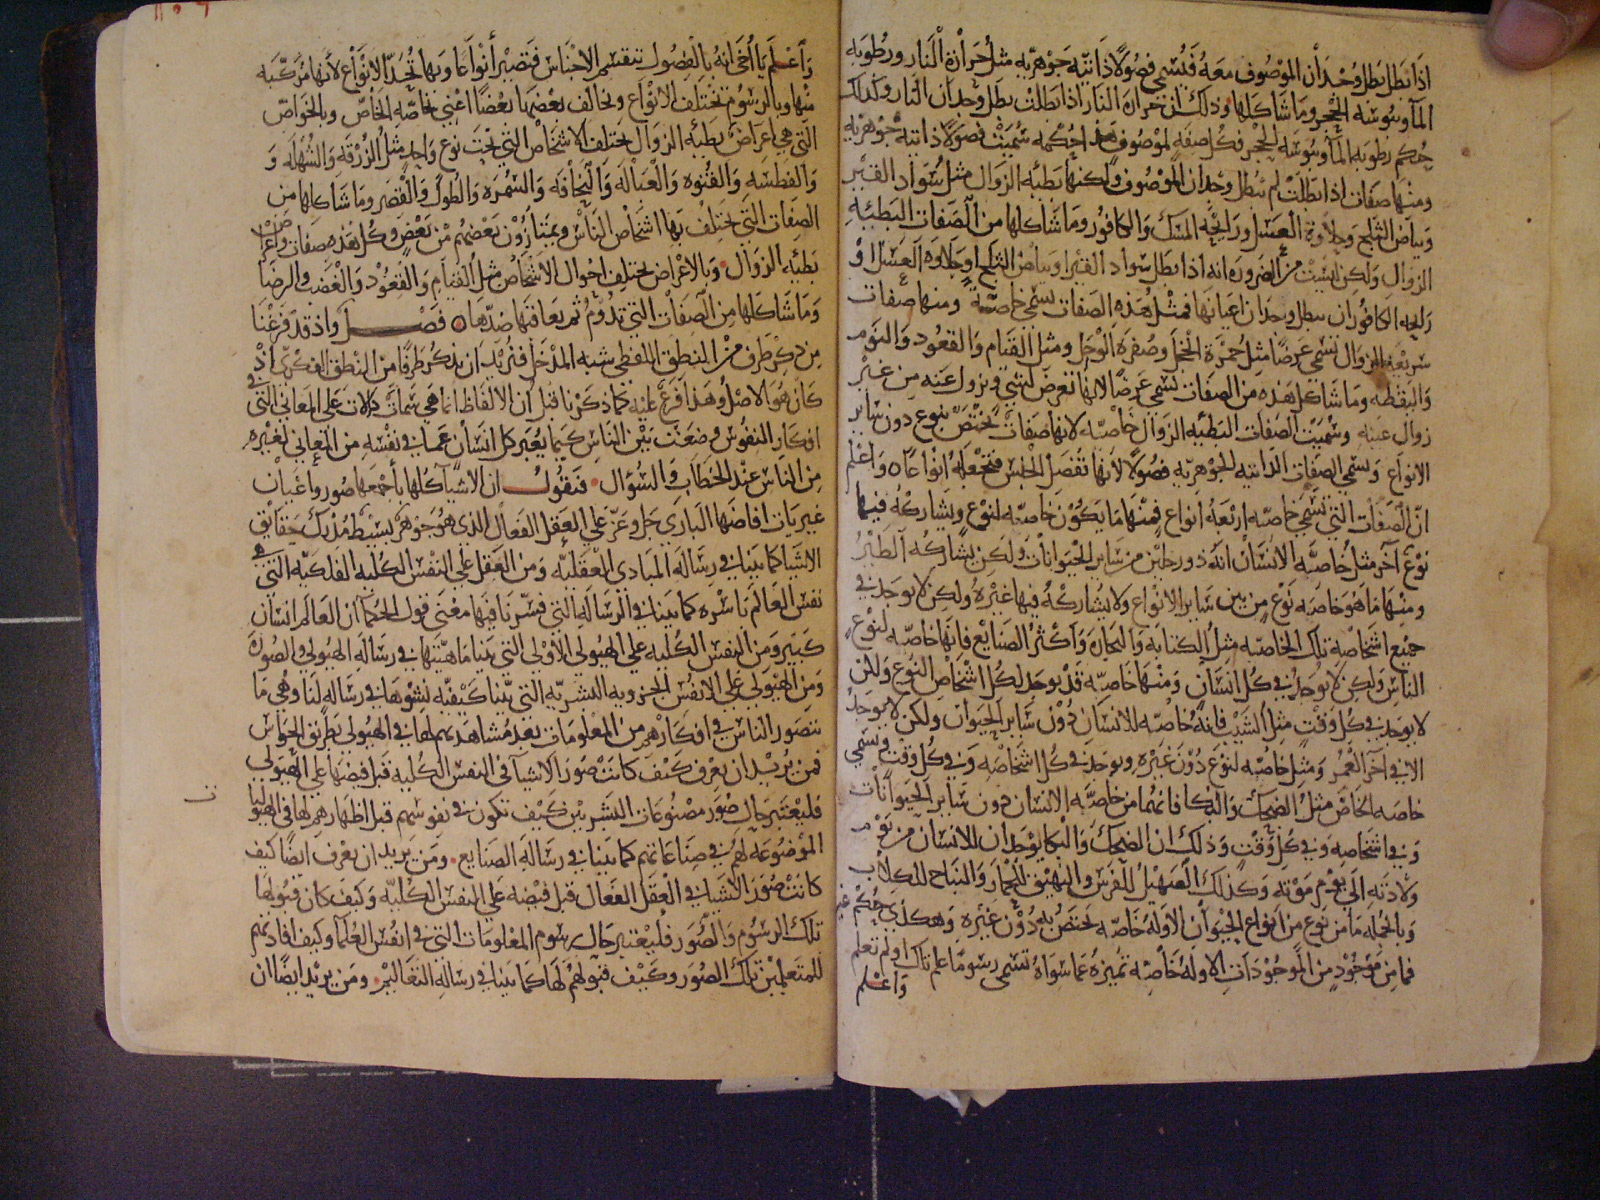 اذا بطل بطل وجدان الموصوف معه فتسمي فصولا ذاتية جوهرية مثل حرارة النار ورطوبه
المآء ويبوسه الحجر وما شاكلها وذلك ان حرارة النار اذا بطلت بطل وجدان النار وكذلك
حكم رطوبه المآ ويبوسه الحجر فكل صفة لموصوف هذا حكمه سميت فصولا ذاتية جوهريه
ومنها صفات اذا بطلت لم يبطل وجدان الموصوف ولكنها بطئة الزوال مثل سواد القير
وبياض الثلج وحلاوة العسل ورايحه المسك والكافور وما شاكلها من الصفات البطئية
الزوال ولكن ليست من الضرورة انه اذا بطل سواد القير او بياض الثلج او حلاوة العسل او
رايحه الكافور ان يبطل وجدان اعيانها فمثل هذه الصفات تسمى خاصته ومنها صفات
سريعة الزوال تسمى عرضا مثل حمرة الخجل وصفرة الوجل ومثل القيام والقعود والنوم
واليقظه وما شاكل هذه من الصفات تسمى عرضا لانها تعرض لشي ويزول عنه من غير
زوال عينه وسميت الصفات البطئه الزوال خاصيه لانها صفات تختص بنوع دون ساير
الانواع وتسمى الصفات الذاتيه الجوهريه فصولا لانها تفصل الجنس فتجعله انواعا واعلم
انّ الصفات التي تسمى خاصيه اربعة انواع فمنها ما يكون خاصيه لنوع ويشاركه فيها
نوع آخر مثل خاصية الانسان انه ذو رجلين من ساير الحيوانات ولكن يشاركه الطير
ومنها ما هو خاصيه نوع من بين ساير الانواع ولا يشاركه فيها غيره ولكن لا يوجد في
جميع اشخاصه تلك الخاصيه مثل الكتابة والتجارة واكثر الصنايع فانها خاصيه لنوع
الناس ولكن لا يوجد في كل انسان ومنها خاصيّه قد يوجد لكل اشخاص النوع ولكن
لا يوجد في كل وقت مثل الشيب فانه خاصيه للانسان دون ساير الحيوان ولكن لا يوجد
الا في آخر العمر ومثل خاصيه لنوع دون غيره ويوجد في كل اشخاصه وفي كل وقت وتسمى
خاصه الخاص مثل الضحك والبكا فانهما من خاصيّه الانسان دون ساير الحيوانات
وفي اشخاصه وفي كل وقت وذلك ان الضحك والبكا يوجدان للانسان من يوم
ولادته الى يوم موته وكذلك الصهيل للفرس والنهيق للحمار والنباح للكلاب
وبالجمله ما من نوع من انواع الحيوان الا وله خاصيه تختص به دون غيره وهكذى حكم غير
فما من موجود من الموجودات الا وله خاصيه تميزه عما سواه تسمى رسوما علم تلك او لم تعلم
واعلم
واعلم يا اخي انه بالفصول تنقسم الاجناس فتصير أنواعا وبها تحدّ الانواع لأنها مركبه
منها وبالرسوم تختلف الانواع ويخالف بعضها بعضًا اعني بخاصه الخاصّ وبالخواصّ
التي هي اعراض بطئه الزوال تختلف الاشخاص التي تحت نوع واحد مثل الزرقه والشهله و
والفطسه والقنوه والعبالة والنحافه والسمرة والطول والقصر وما شاكلها من
الصفات التي تختلف بها اشخاص الناس ويمتازون بعضهم من بعض وكل هذه صفات واعراض
بطئه الزوال وبالاعراض تختلف احوال الاشخاص مثل القيام والقعود والغضب والرضا
وما شاكلها من الصفات التي تدوم ثم يعاقبها ضدها فصل واذ قد فرغنا
من ذكر طرف من المنطق اللفظي شبه المدخل فنريد ان نذكر طرفًا من المنطق الفكري اذ
كان هو الاصل وهذا فرع عليه كما ذكرنا قبل ان الالفاظ انما هي سمات دالات على المعاني التي في
افكار النفوس وضعت بين الناس كيما يعبر كل انسان عما في نفسه من المعاني لغيره
من الناس عند الخطاب والسؤال فنقول ان الاشيآ كلها بأجمعها صور واعيان
غيريات افاضها الباري جل وعز على العقل الفعال الذي هو جوهر بسيط مدرك حقايق
الاشيا كما بينا في رسالة المبادي العقليّه ومن العقل على النفس الكليه الفلكيه التي هي
نفس العالم باسره كما بينا في الرسالة التي فسّرنا فيها معنى قول الحكمآ ان العالم انسان
كبير ومن النفس الكليه على الهيولى الاولى التي بينا ماهيتها في رسالة الهيولى والصورة
ومن الهيولى على الانفس الجزويه البشريه التي بيّنا كيفيه نشوها في رسالة لنا وهي ما
يتصور الناس في افكارهم من المعلومات بعد مشاهدتهم لها في الهيولى بطريق الحواس
فمن يريد ان يعرف كيف كانت صور الاشيآ في النفس الكليه قبل فيضها على الهيولى
فليعتبر حال صور مصنوعات البشريين كيف تكون في نفوسهم قبل اظهارهم لها في الهيوليا
الموضوعه لهم في صناعاتهم كما بينا في رسالة الصنايع ومن يريد ان يعرف ايضا كيف
كانت صور الاشيا في العقل الفعال قبل فيضه على النفس الكليّه وكيف كان قبولها
تلك الرسوم والصور فليعتبر حال رسوم المعلومات التي في انفس العلمآ وكيف افادتهم
للمتعلمين تلك الصور وكيف قبولهم لها كما بينا في رسالة التعاليم ومن يريد ايضا ان